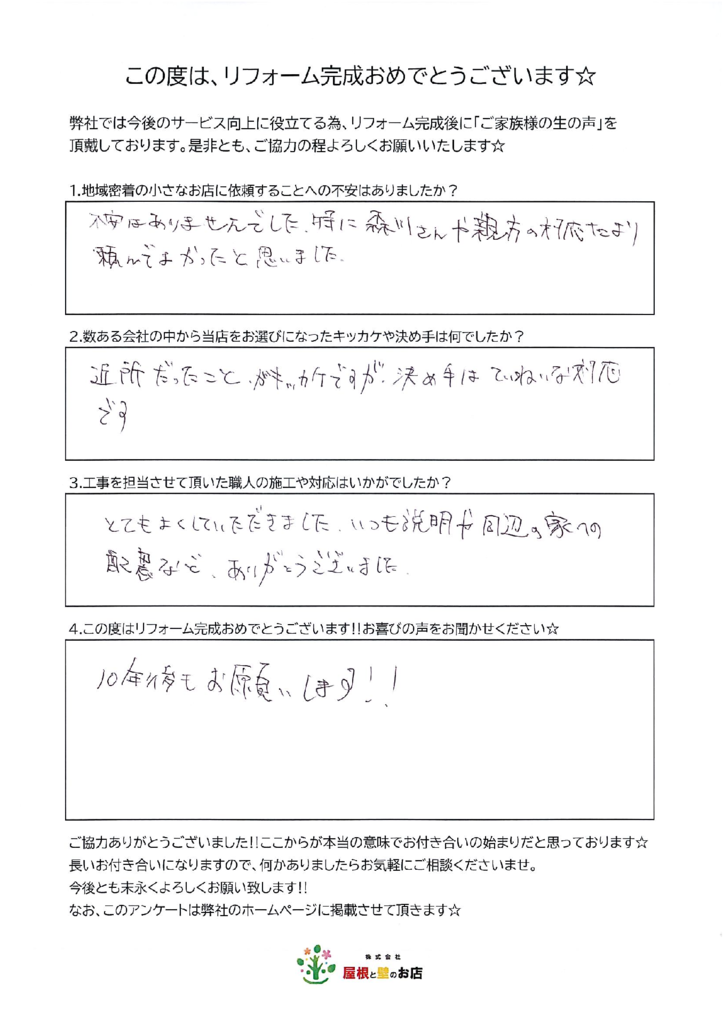 この度は、リフォーム完成おめでとうございます☆
弊社では今後のサービス向上に役立てる為、リフォーム完成後に「ご家族様の生の声」を
頂戴しております。是非とも、ご協力の程よろしくお願いいたします☆
1.地域密着の小さなお店に依頼することへの不安はありましたか?
不安はありませんでした。特に森川さんや親方の対応たより
頼んでよかったと思いました。
2.数ある会社の中から当店をお選びになったキッカケや決め手は何でしたか?
近所だったこと、がキッカケですが、決め手はていねいな対応
です
3.工事を担当させて頂いた職人の施工や対応はいかがでしたか?
とてもよくしていただきました。いつも説明や周辺の家への
配慮など、ありがとうございました。
4.この度はリフォーム完成おめでとうございます!!お喜びの声をお聞かせください☆
10年後もお願いします!!
ご協力ありがとうございました!!ここからが本当の意味でお付き合いの始まりだと思っております☆
長いお付き合いになりますので、何かありましたらお気軽にご相談くださいませ。
今後とも末永くよろしくお願い致します!!
なお、このアンケートは弊社のホームページに掲載させて頂きます☆
株式会社
屋根と壁のお店